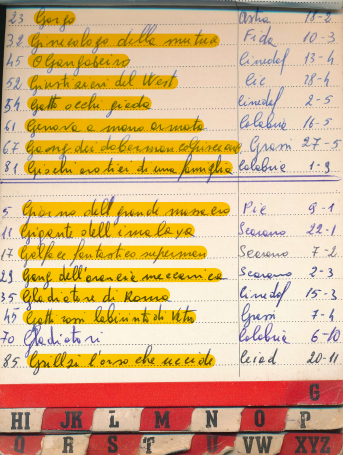 23 Gorgo Astra 18-2
32 Ginecologo della mutua Fida 10-3
45 O Gangaceiro Cinedef 13-4
52 Giustizieri del West Cic 28-4
54 Gatto occhi giada Cinedef 2-5
61 Genova a mano armata Calabria 16-5
67 Gang dei doberman Grassi 27-5
81 Giochi erotici di una famiglia Calabria 1-9
5 Giorno dell grande massacro Pic 9-1
11 Gigante dell'imalaya Scarano 22-1
17 Golfo e fantastico supermen Scarano 7-2
29 Gang dell'arancia meccanica Scarano 2-3
35 Gladiatore di Roma Cinedef 15-3
45 Gatti rossi labirinto di Vetro Grassi 7-4
70 Gladiatori Calabria 6-10
85 Grizzli l'orso che uccide Ceiad 20-11
G
HI JK L M N O P
Q R S T U VW XYZ